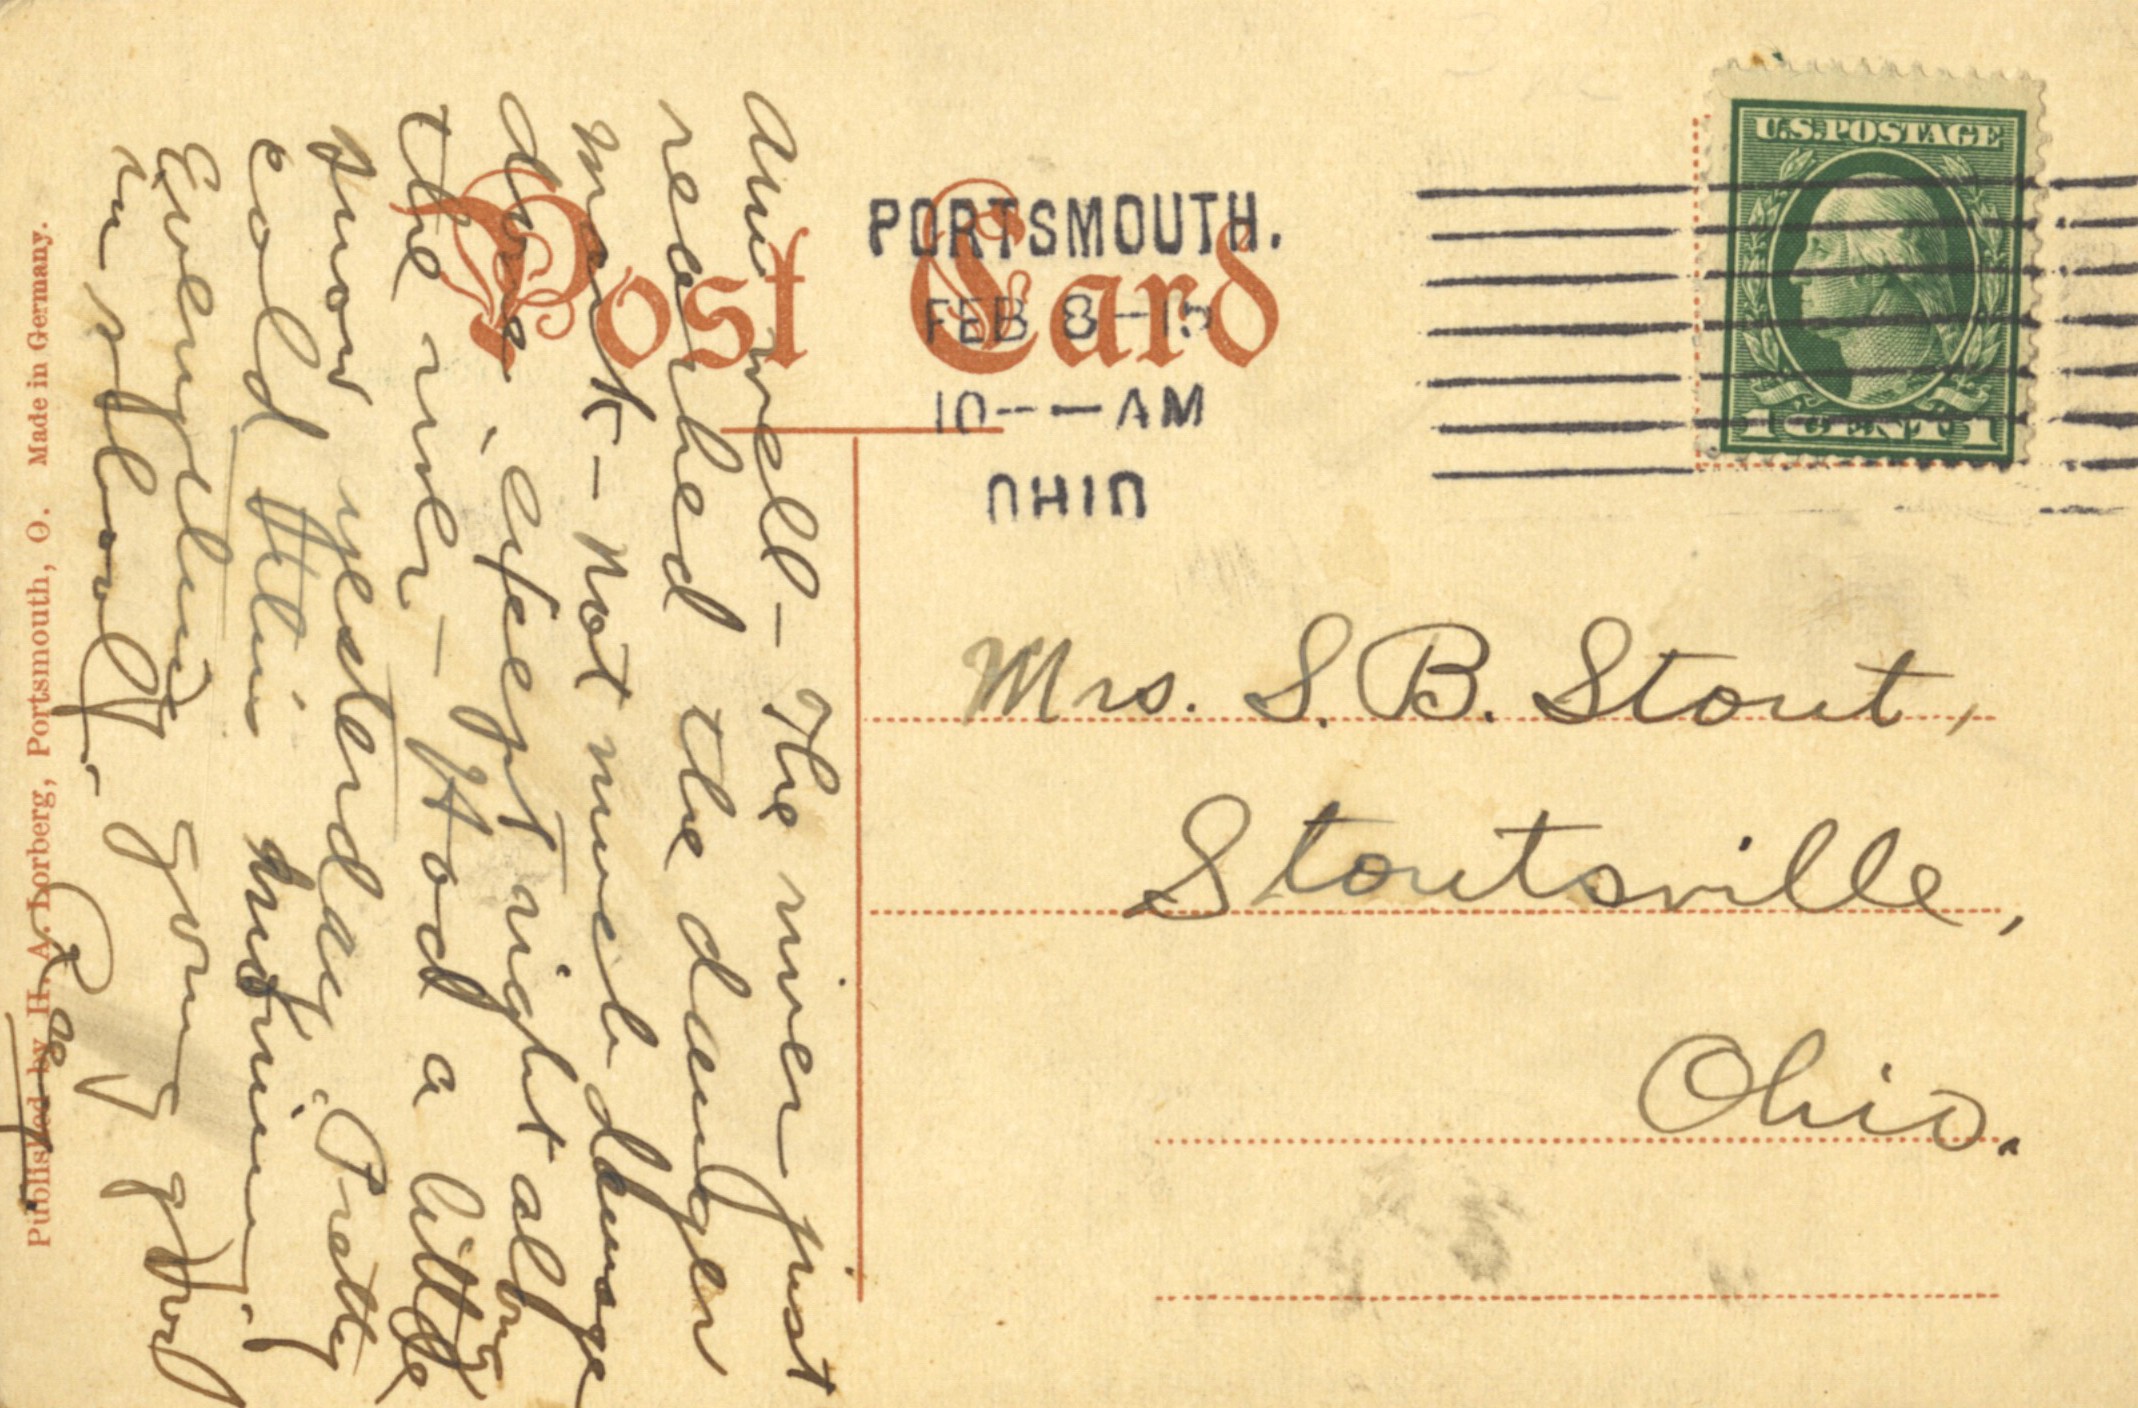 Post Card
PORTSMOUTH.
FEB 8 - 15
10 -- — AM
OHIO
U.S. POSTAGE
1 CENT 1
Am well - The river just
reached the danger
mark - Not much damage
done, except right along
the river - Had a little
snow yesterday, Pretty
cold this morning.
Everything going good
in school.
Ray
Mrs. S. B. Stout,
Stoutsville,
Ohio.
Published by H. A. Lorberg, Portsmouth, O. Made in Germany.